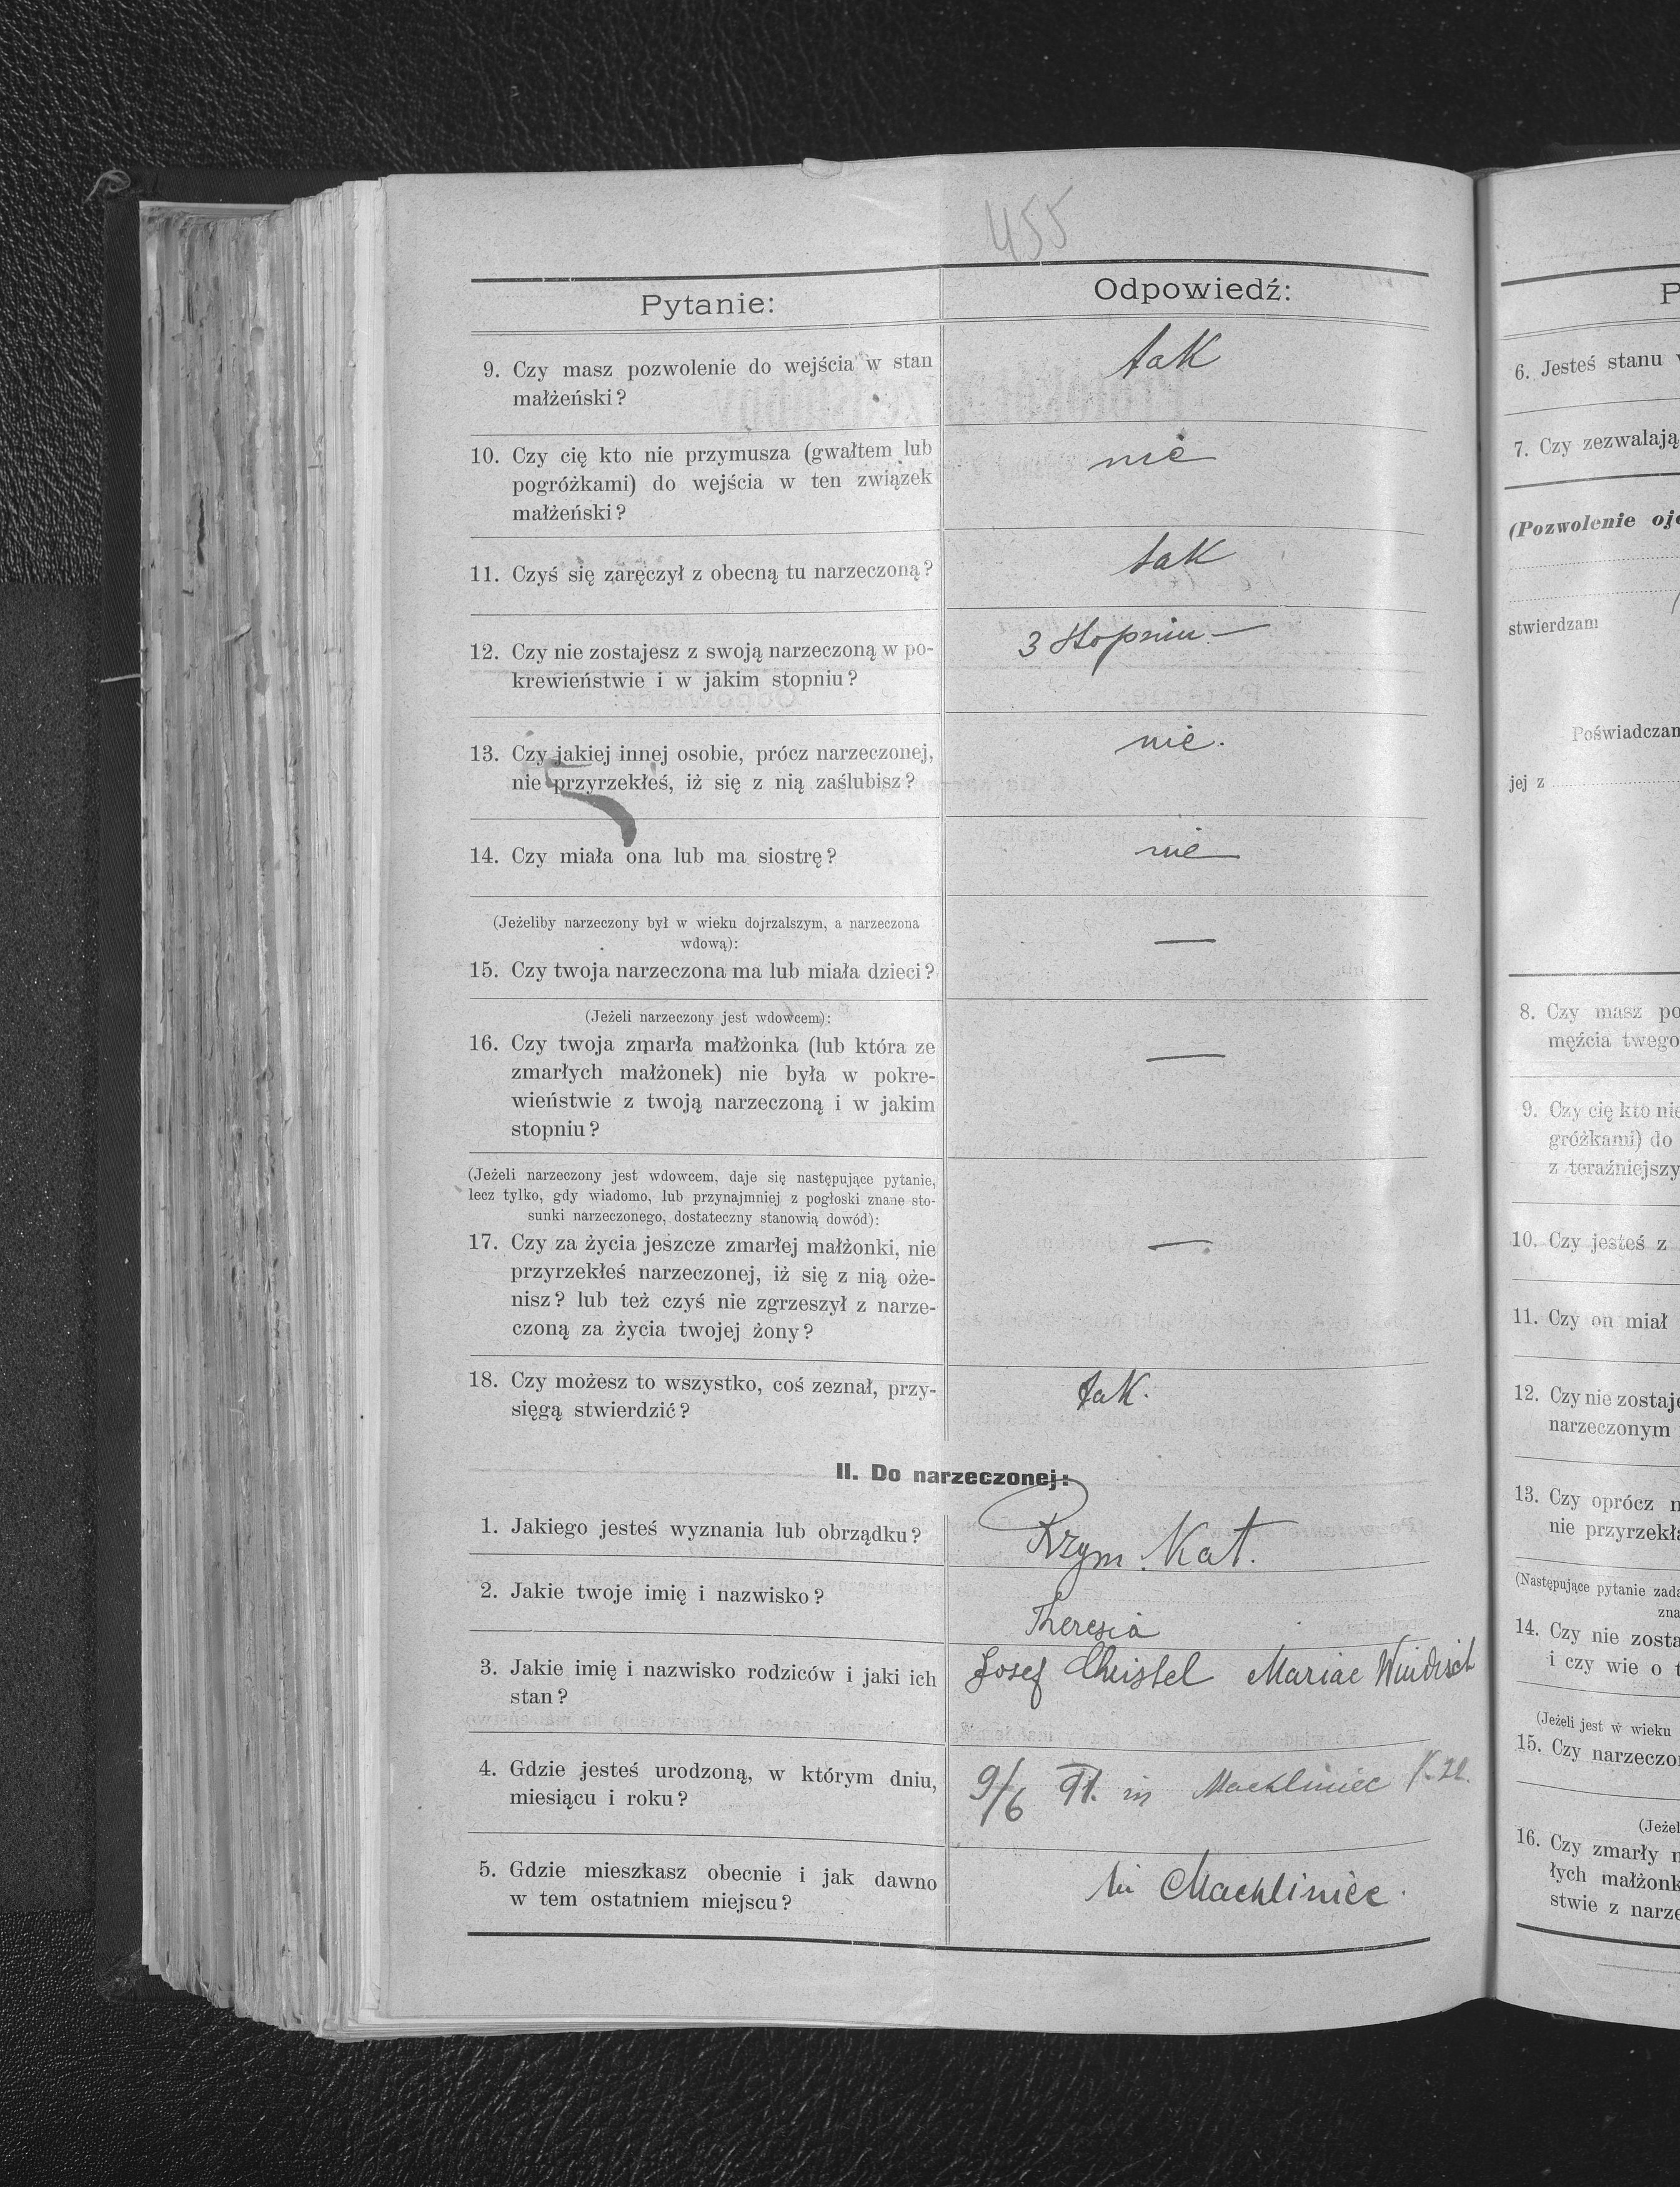 455
Pytanie:
Odpowiedź:
9. Czy masz pozwolenie do wejścia w stan
małżeński?
tak
10. Czy cię kto nie przymusza (gwałtem lub
pogróżkami) do wejścia w ten związek
małżeński?
nie
11. Czyś się zaręczył z obecną tu narzeczoną?
tak
12. Czy nie zostajesz z swoją narzeczoną w po-
krewieństwie i w jakim stopniu?
3 stopniu —
13. Czy jakiej innej osobie, prócz narzeczonej,
nie przyrzekłeś, iż się z nią zaślubisz?
nie.
14. Czy miała ona lub ma siostrę?
nie
(Jeżeliby narzeczony był w wieku dojrzalszym, a narzeczona
wdową):
15. Czy twoja narzeczona ma lub miała dzieci?
—
(Jeżeli narzeczony jest wdowcem):
16. Czy twoja zmarła małżonka (lub która ze
zmarłych małżonek) nie była w pokre-
wieństwie z twoją narzeczoną i w jakim
stopniu?
—
(Jeżeli narzeczony jest wdowcem, daje się następujące pytanie,
lecz tylko, gdy wiadomo, lub przynajmniej z pogłoski znane sto-
sunki narzeczonego, dostateczny stanowią dowód):
17. Czy za życia jeszcze zmarłej małżonki, nie
przyrzekłeś narzeczonej, iż się z nią oże-
nisz? lub też czyś nie zgrzeszył z narze-
czoną za życia twojej żony?
—
18. Czy możesz to wszystko, coś zeznał, przy-
sięgą stwierdzić?
tak.
II. Do narzeczonej:
1. Jakiego jesteś wyznania lub obrządku?
Rzym. Kat.
2. Jakie twoje imię i nazwisko?
Theresia
3. Jakie imię i nazwisko rodziców i jaki ich
stan?
Josef Christel Mariae Windisch
4. Gdzie jesteś urodzoną, w którym dniu,
miesiącu i roku?
9/6 91. in Machliniec
5. Gdzie mieszkasz obecnie i jak dawno
w tem ostatniem miejscu?
in Machliniec.
P
6. Jesteś stanu
7. Czy zezwalają
(Pozwolenie
stwierdzam
jej z
8. Czy masz
męźcia twego
9. Czy cię kto
gróżkami) do
z
10. Czy jesteś z
11. Czy on miał
12. Czy nie
narzeczonym
13. Czy oprócz
nie
(Następujące pytanie
14. Czy nie
i czy wie o
(Jeżeli jest w wieku
15. Czy
16. Czy zmarły
stwie z